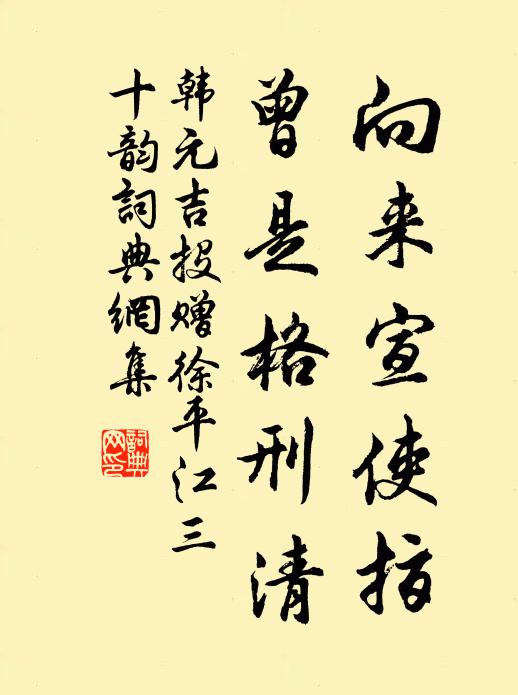 向来宣使指
曾是格刑清
韩元吉投赠徐平江三
十韵詞典網集
詞典
网印